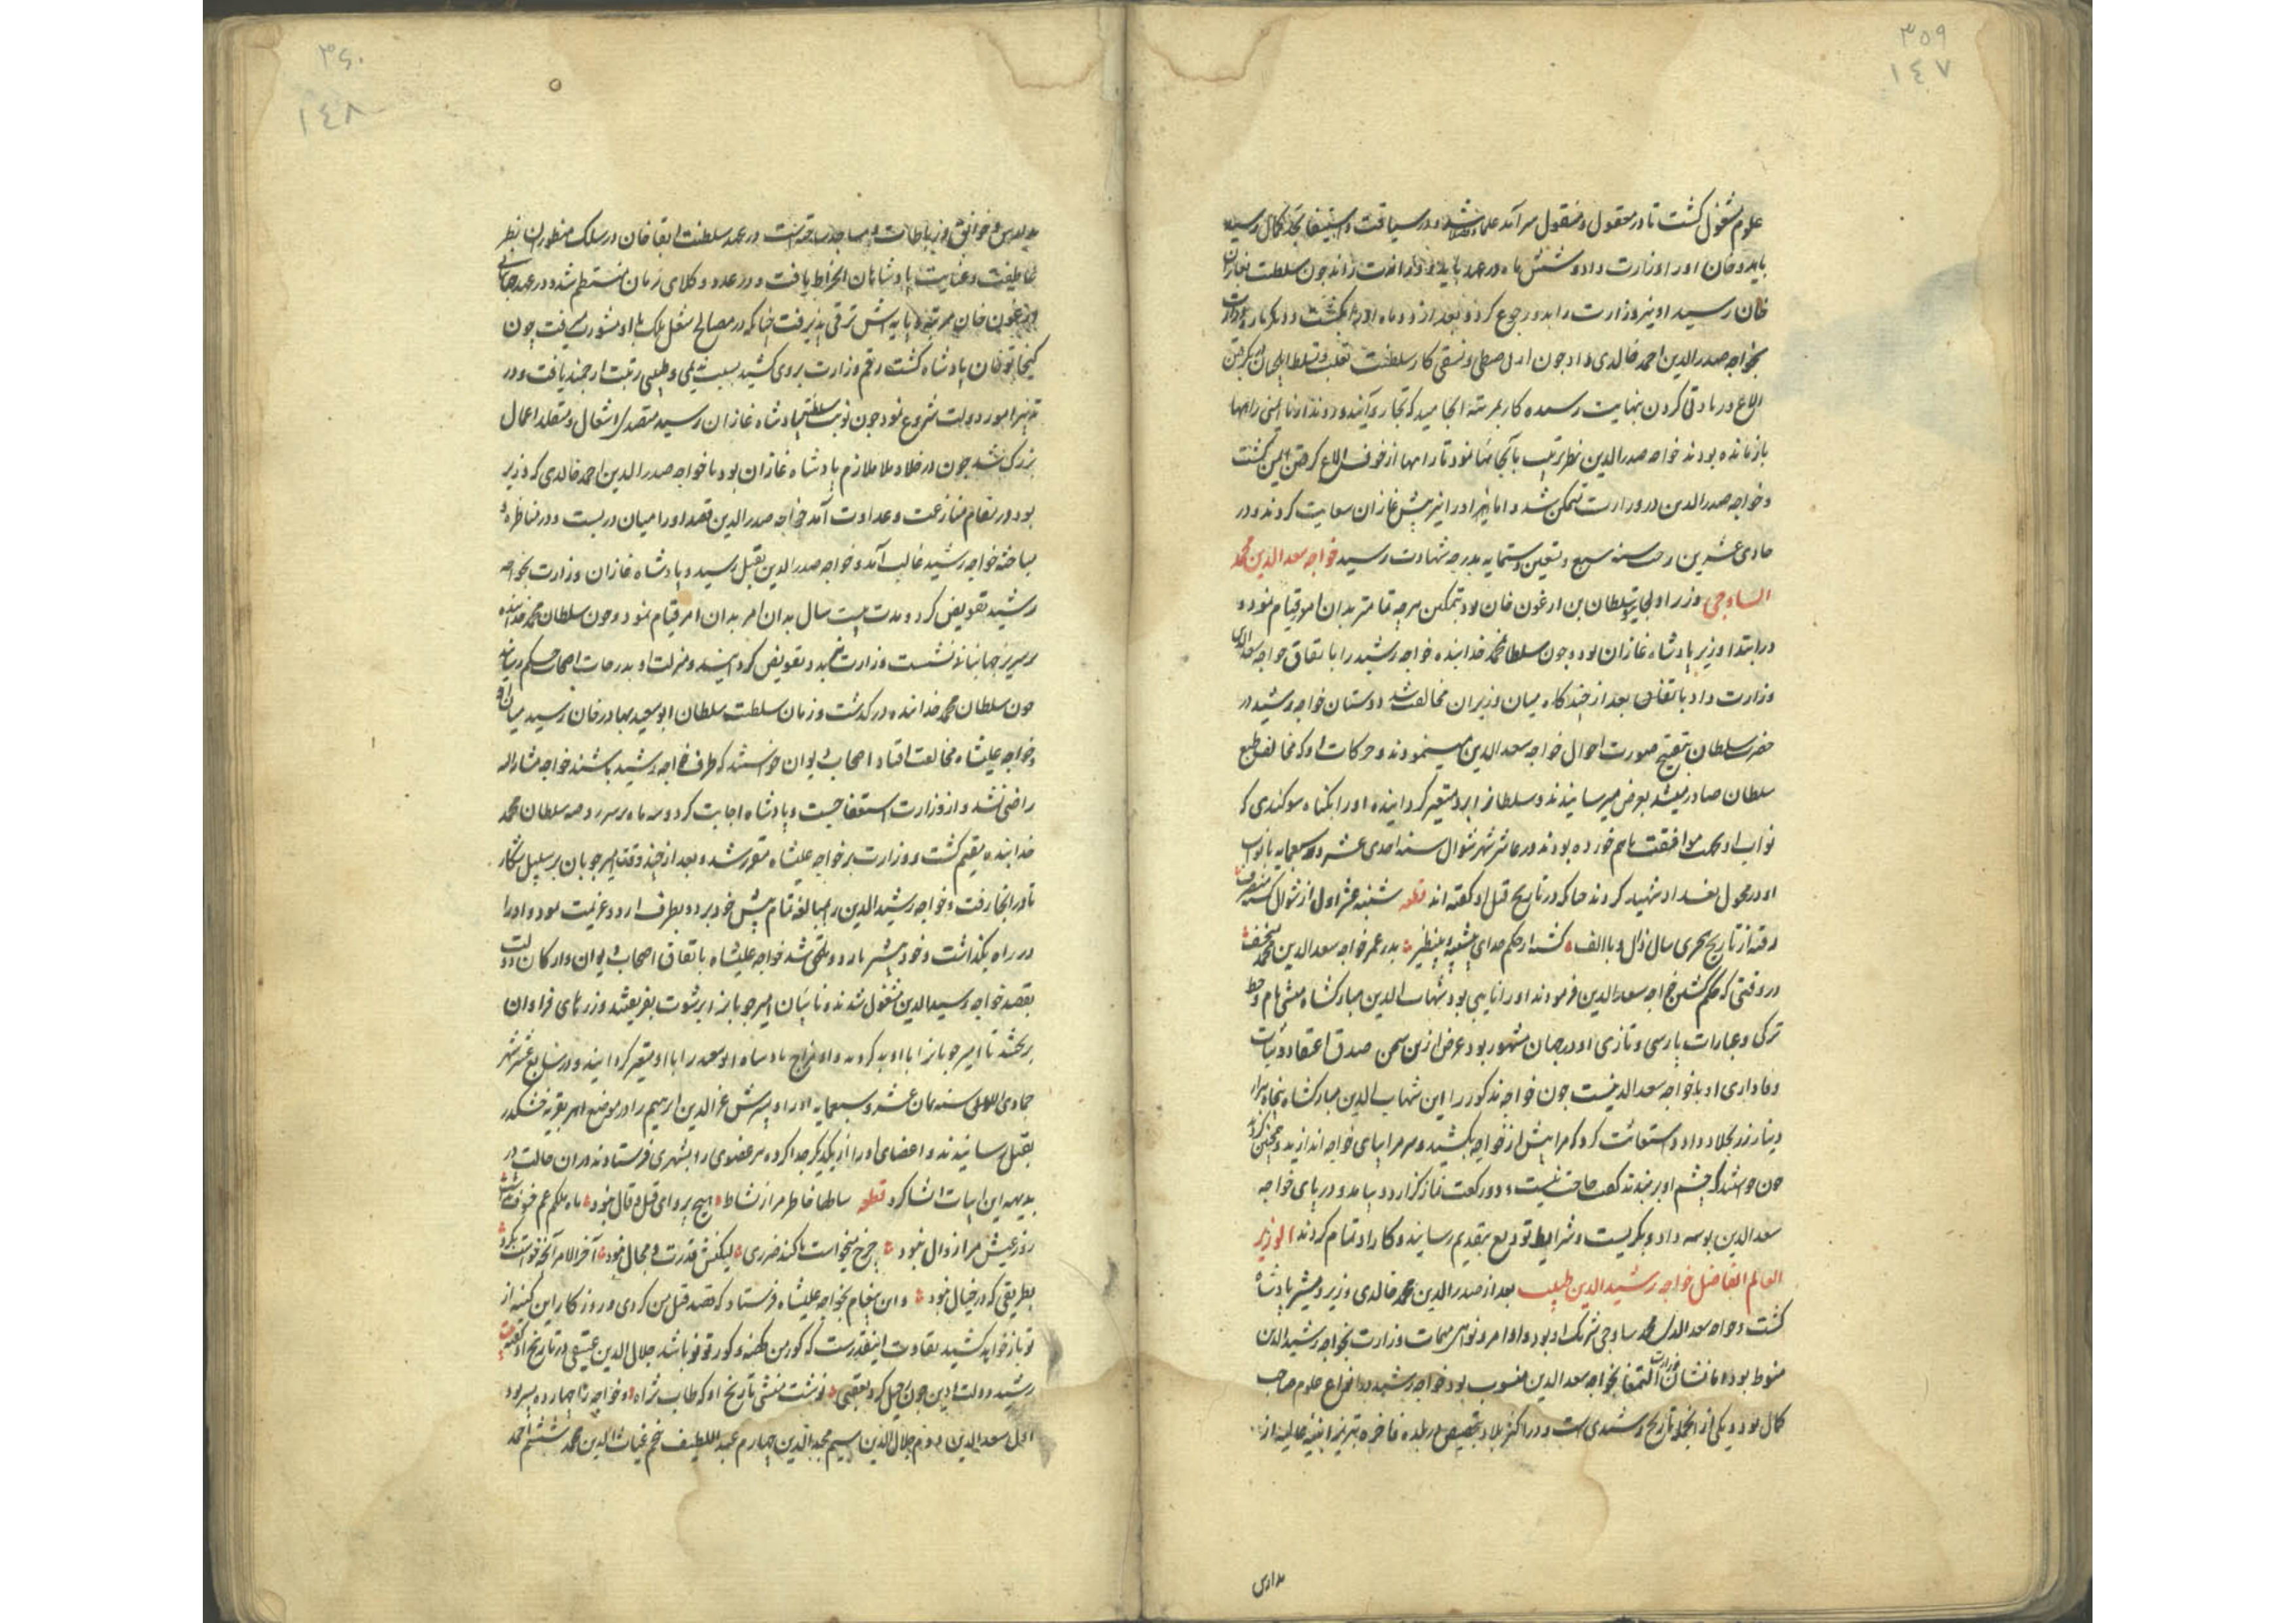 ۳۵۹
۱٤۷
علوم مشغول گشت تا در معقول و منقول سرآمد علما و فضلا شد و در سیاقت و استیفا بحد کمال رسید
بایدو خان او را وزارت داد و شش ماه در عهد بایدو وزارت راند چون سلطنت بغازان
خان رسید او نیز وزارت را بدو رجوع کرد و بعد از دو ماه او را بکشت و دیگر باره وزارت
بخواجه صدر الدین احمد خالدی داد چون اول ضبطی و نسقی کار سلطنت
الاغ در باد فی کردن بنهایت رسیده کار بمرتبه انجامید که تجار و آینده و رونده از نا ایمنی راهها
باز مانده بودند خواجه صدر الدین بآنجا نمود تا راهها از خوف الاغ گرفتن ایمن گشت
و خواجه صدر الدین در وزارت متمکن شد و اما او را نیز پیش غازان سعایت کردند و در
حادی عشرین سنه سبع و تسعین و ستمایه بدرجه شهادت رسید خواجه سعد الدین محمد
الساوجی وزیر اولجایتو سلطان بن ارغون خان بود بتمکین هرچه تمامتر بدان امور قیام نمود و
در ابتدا وزیر پادشاه غازان بود و چون سلطان محمد خدابنده خواجه رشید را باتفاق خواجه سعد الدین
وزارت داد باتفاق بعد از چندگاه میان وزیران مخالفت شد دوستان خواجه رشید در
حضرت سلطان بتقبیح صورت احوال خواجه سعد الدین مینمودند و حرکات او که مخالف طبع
سلطان صادر میشد بعرض میرسانیدند و سلطان را بر او متغیر گردانیده او را بگناه سوگندی که
نواب او بجهت موافقت باهم خورده بودند در عاشر شهر شوال سنه احدی عشر و سبعمایه با نواب
او در محول بغداد شهید کردند چنانکه در تاریخ قتل او گفته اند قطعه شنبه عشر اول از شوال
رفته از تاریخ هجری سال ذال و یا الف کشته از حکم خدای بی شبیه و بی نظیر بدر عمر خواجه سعد الدین محمد
در وقتی که حکم کشتن خواجه سعد الدین فرمودند او را نایبی بود شهاب الدین مبارکشاه منشی نام و خط
ترکی و عبارات پارسی و تازی او در جهان مشهور بود غرض ازین سخن صدق اعتقاد و ثبات
وفاداری او با خواجه سعد الدینست چون خواجه مذکور را این شهاب الدین مبارکشاه پنجاه هزار
دینار زر بجلاد داد و استعانت کرد که مرا پیش از خواجه بکشید و سر مرا بپای خواجه اندازید و همچنین کردند
چون خواستند که چشم او بر بندند گفت حاجت نیست و دو رکعت نماز گزارد و بیامد و در پای خواجه
سعد الدین بوسه داد و بگریست و شرایط تودیع بتقدیم رسانید و کار او تمام کردند الوزیر
العالم الفاضل خواجه رشید الدین طبیب بعد از صدر الدین محمد خالدی وزیر و مشیر پادشاه
گشت و خواجه سعد الدین محمد ساوجی شریک او بود و اوامر و نواهی مهمات وزارت بخواجه رشید الدین
منوط بود اما نشان وزارت و التمغا بخواجه سعد الدین منسوب بود خواجه رشید در انواع علوم صاحب
کمال بود و یکی از آنجمله تاریخ رشیدی است و در اکثر بلاد بتخصیص در بلده فاخره تبریز ابنیه عالیه از
مدارس
۳۶۰
۱٤۸
مدارس و خوانق و رباطات و مساجد ساخته است در عهد سلطنت ابقا خان در سلک منظوران بنظر
عاطفت و عنایت پادشاهان انخراط یافت و در عدد وکلای زمان منتظم شد و در عهد جهانبانی
ارغون خان مرتبه و پایه اش ترقی پذیرفت چنانکه در مصالح ملک با او مشورت میرفت چون
کیخاتو خان پادشاه گشت رقم وزارت بروی کشید بسبب ندیمی و طبیبی رتبت ارجمند یافت و در
تدبیر امور دولت شروع نمود چون نوبت سلطنت بپادشاه غازان رسید متصدی اشغال و متقلد اعمال
بزرگ شد چون در خلا و ملا ملازم پادشاه غازان بود با خواجه صدر الدین احمد خالدی که وزیر
بود در مقام منازعت و عداوت آمد خواجه صدر الدین قصد او را میان دربست و در مناظره و
مباحثه خواجه رشید غالب آمد و خواجه صدر الدین بقتل رسید و پادشاه غازان وزارت بخواجه
رشید تفویض کرد و مدت بیست سال بدان امر بدان امر قیام نمود و چون سلطان محمد خدابنده
بر سریر جهانبانی نشست وزارت بدو تفویض گردانید و منزلت او بدرجات اصحاب حکم رسانید
چون سلطان محمد خدابنده درگذشت و زمان سلطنت سلطان ابو سعید بهادر خان رسید میان او
و خواجه علیشاه مخالفت افتاد اصحاب دیوان خواستند که طرف خواجه رشید باشند خواجه مشار الیه
راضی نشد و از وزارت استعفا جست و پادشاه اجابت کرد و سه ماه بر سر روضه سلطان محمد
خدابنده مقیم گشت و وزارت بر خواجه علیشاه مقرر شد و بعد از چند وقت امیر چوبان بر سبیل شکار
تا در انجا رفت و خواجه رشید الدین را بمبالغه تمام پیش خود برد و بطرف اردو عزیمت نمود و او را
در راه بگذاشت و خود پیشتر باردو ملحق شد خواجه علیشاه باتفاق اصحاب دیوان و ارکان دولت
بقصد خواجه رشید الدین مشغول شدند و نایبان امیر چوبان را برشوت بفریفتند و زرهای فراوان
ببخشید تا امیر چوبان را با او بد کردند و مزاج پادشاه ابو سعید را با او متغیر گردانیند و در سابع عشر شهر
جمادی الاولی سنه ثمان عشر و سبعمایه او را و پسرش عز الدین ابراهیم را در موضع ابهر بقریه خشکدر
بقتل رسانیدند و اعضای او را از یکدیگر جدا کرده هر عضوی را بشهری فرستادند در ان حالت در
بدیهه این ابیات انشا کرد قطعه سالها خاطر مرا ز نشاط هیچ پروای قیل و قال نبود
روز عیش مرا زوال نبود چرخ میخواست تا کند ضرری لیکنش قدرت و مجال نبود آخر الامر آنچه خواست بکرد
بطریقی که در خیال نبود و این پیغام بخواجه علیشاه فرستاد که قصد قتل من کردی و روزگار این کینه از
تو باز خواهد کشید تفاوت اینقدرست که گور من کهنه و گور تو نو باشد جلال الدین عتیقی در تاریخ او گفته
رشید دولت و دین چون رحیل کرد بعقبی نوشت منشی تاریخ او که طاب ثراه و خواجه را چهارده پسر بود
اول سعد الدین دوم جلال الدین سیم مجد الدین چهارم عبد اللطیف پنجم غیاث الدین محمد ششم احمد